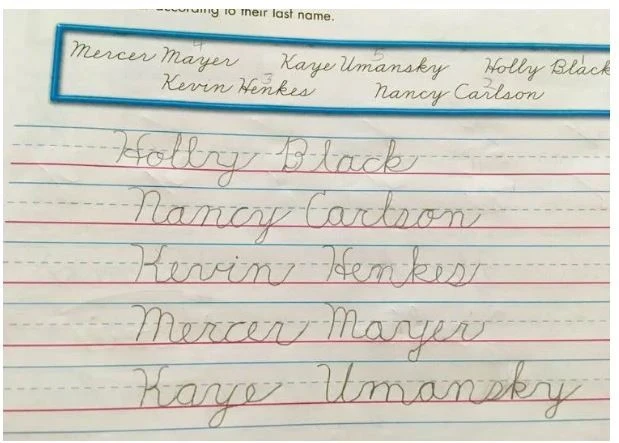 according to their last name.
4 5 1
Mercer Mayer Kaye Umansky Holly Black
3 2
Kevin Henkes Nancy Carlson
Holly Black
Nancy Carlson
Kevin Henkes
Mercer Mayer
Kaye Umansky